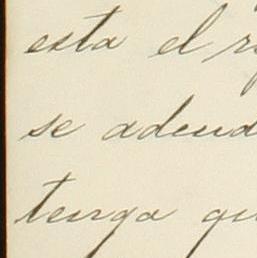 esta el r
se adeud
tenga qu